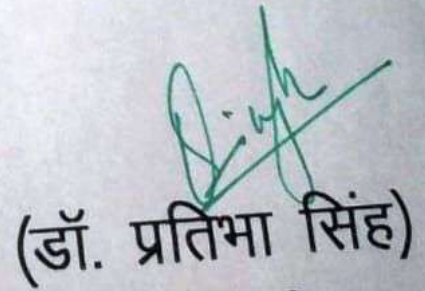 (डॉ. प्रतिभा सिंह)